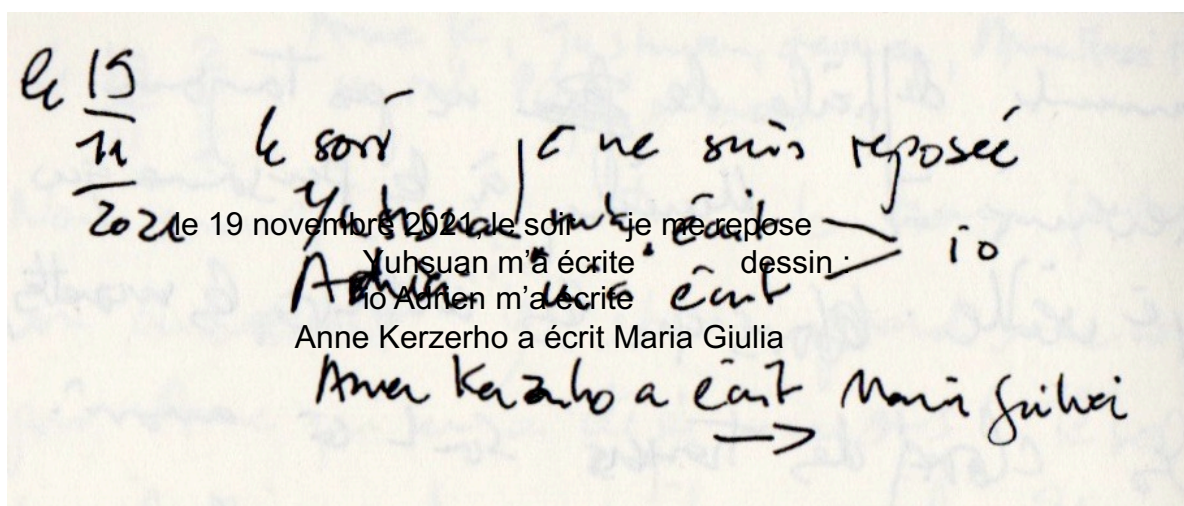 le 19
11
2021
le soir je me suis reposée
Yuhsuan m'a écrit
Adrien m'a écrit
io
Anne Kerzerho a écrit Maria Giulia
le 19 novembre 2021, le soir je me repose
Yuhsuan m’a écrite dessin :
io Adrien m’a écrite
Anne Kerzerho a écrit Maria Giulia